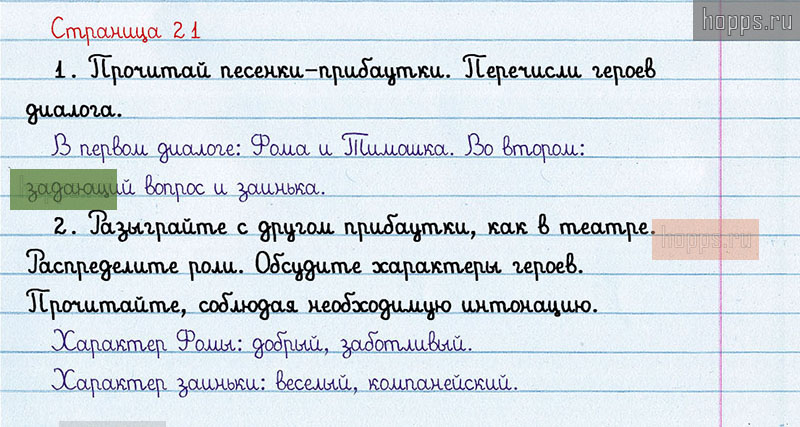 hopps.ru
Страница 21
1. Прочитай песенки-прибаутки. Перечисли героев
диалога.
В первом диалоге: Фома и Тимашка. Во втором:
задающий вопрос и заинька.
2. Разыграйте с другом прибаутки, как в театре.
hopps.ru
Распределите роли. Обсудите характеры героев.
Прочитайте, соблюдая необходимую интонацию.
Характер Фомы: добрый, заботливый.
Характер заиньки: веселый, компанейский.